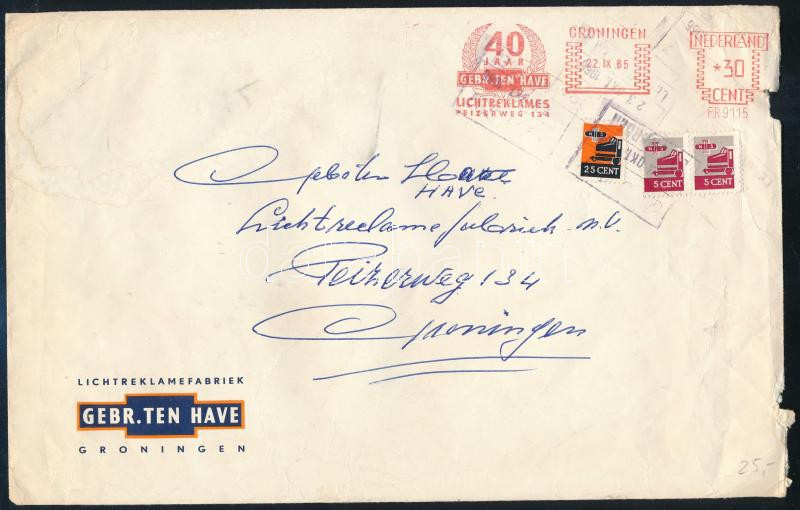 40
JAAR
GEBR. TEN HAVE
LICHTREKLAMES
PEIZERWEG 134
GRONINGEN
22. IX 65
NEDERLAND
*30
CENT
FR 9115
25 CENT
5 CENT
5 CENT
HAVE
Lichtreclamefabriek n.V.
Peizerweg 134
Groningen
LICHTREKLAMEFABRIEK
GEBR. TEN HAVE
GRONINGEN
25,-